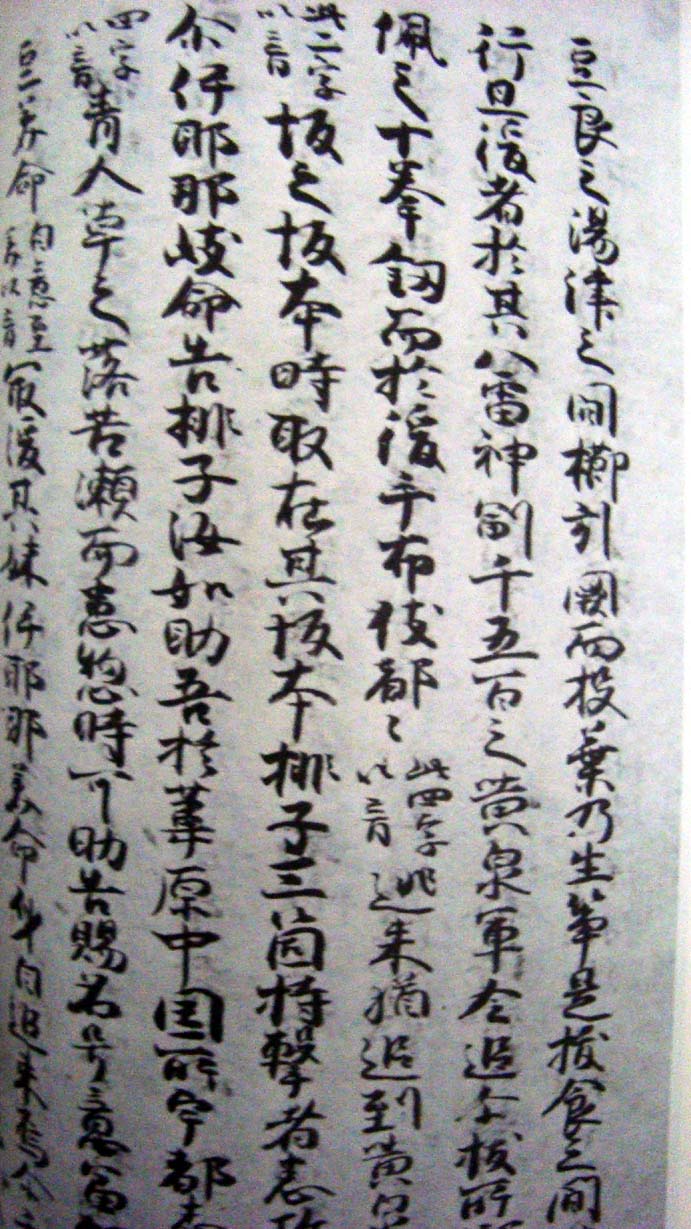 豆良之湯津之間櫛引闕而投棄乃生笋是拔食之間
行且後者於其八雷神副千五百之黄泉軍令追尓拔所
佩之十拳釼而於後手布伎都〻此四字以音逃来猶追到黄泉
此二字以音坂之坂本時取在其坂本桃子三箇持撃者悉
尓伊耶那岐命告桃子汝如助吾於葦原中国所宇都志
四字以音青人草之落苦瀬而患惚時可助告賜名号意富
豆美命自意至美以音最後其妹伊耶那美命身自追来焉尓